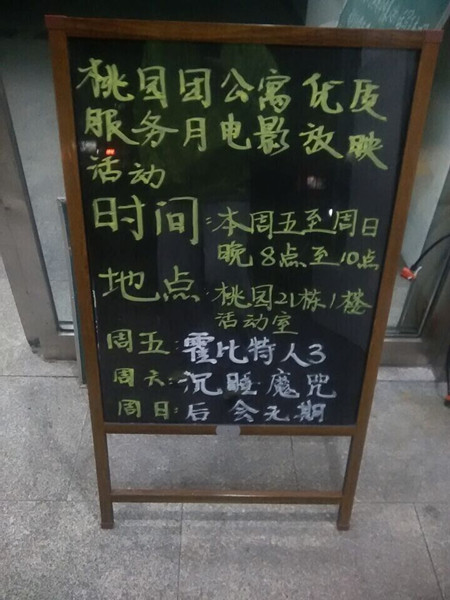 桃园团公寓优质
服务月电影放映
活动
时间:本周五至周日
晚8点至10点
地点:桃园21栋1楼
活动室
周五:霍比特人3
周天:沉睡魔咒
周日:后会无期